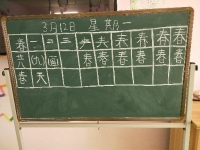 3月12日 星期一
春 一 二 三 𡗗 夫 春 春 春 春
共 (九) 画 春 春 春 春 春 春
春 夫